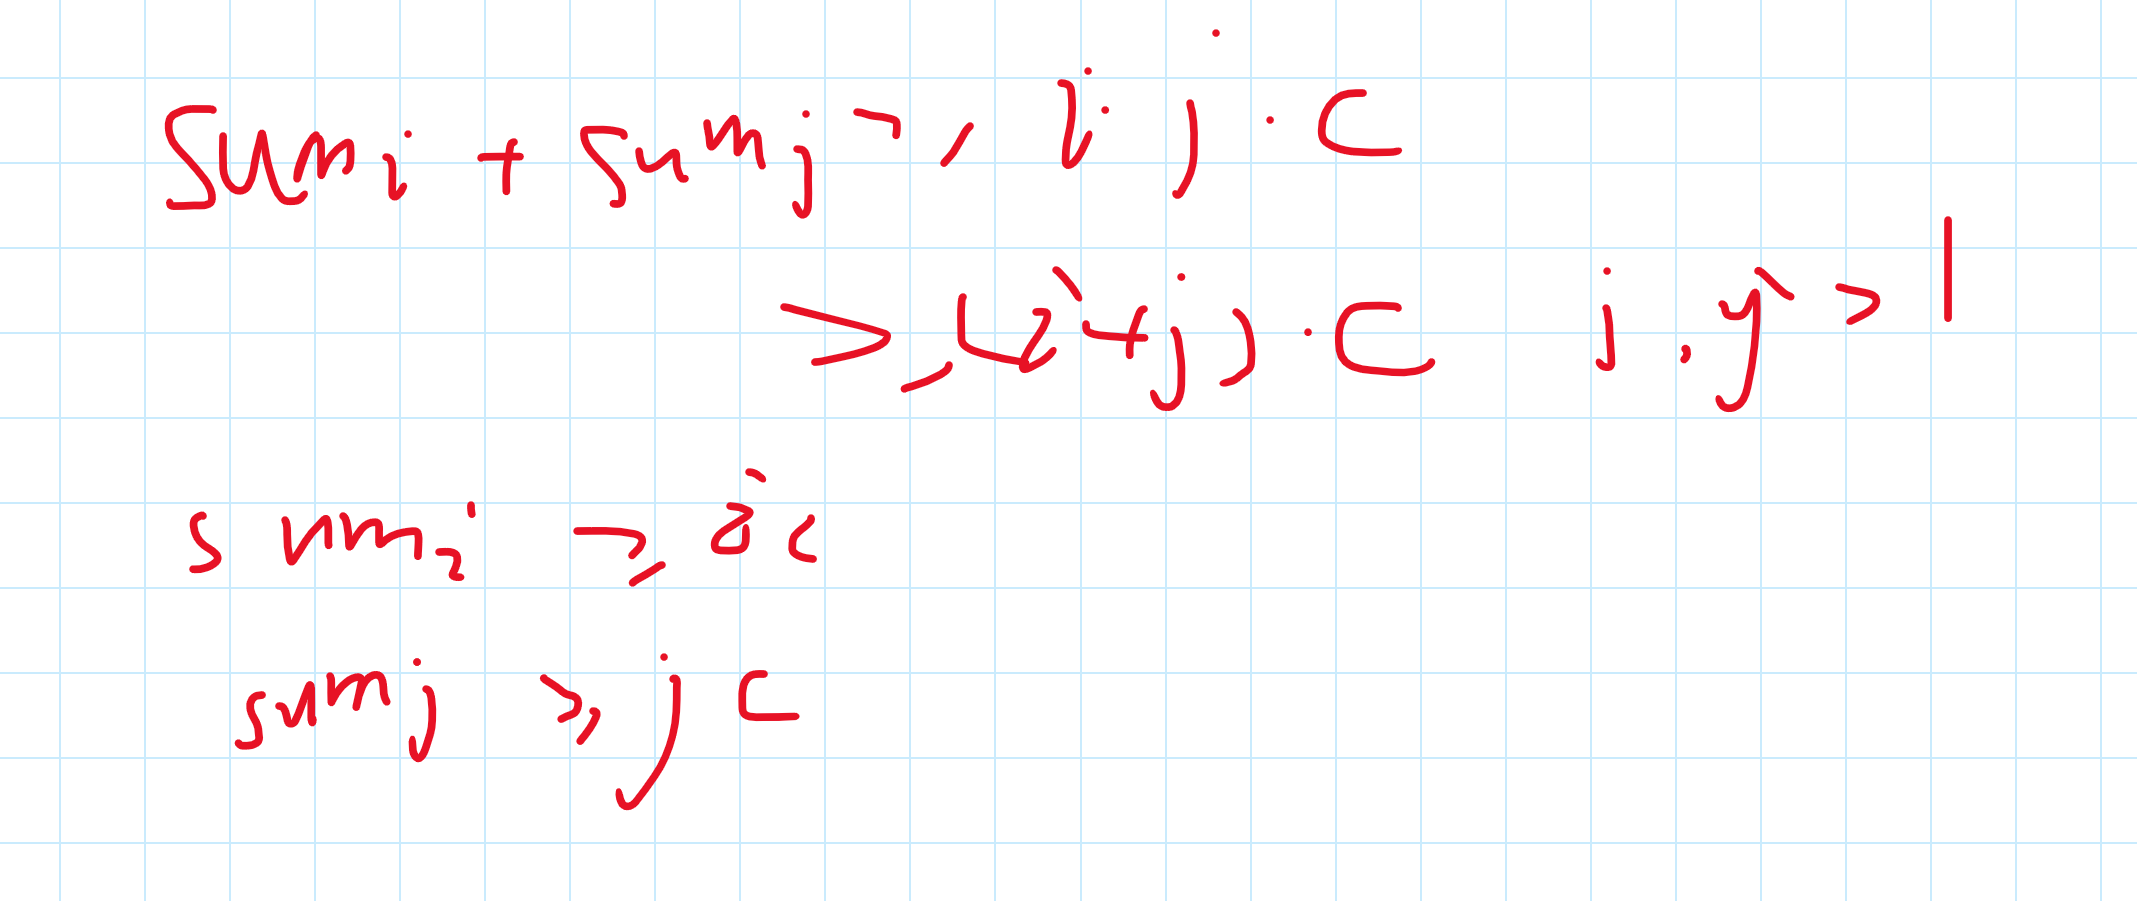 sum i + sum j ≥ i · j · c
≥ (i + j) · c i, j > 1
sum i ≥ i c
sum j ≥ j c